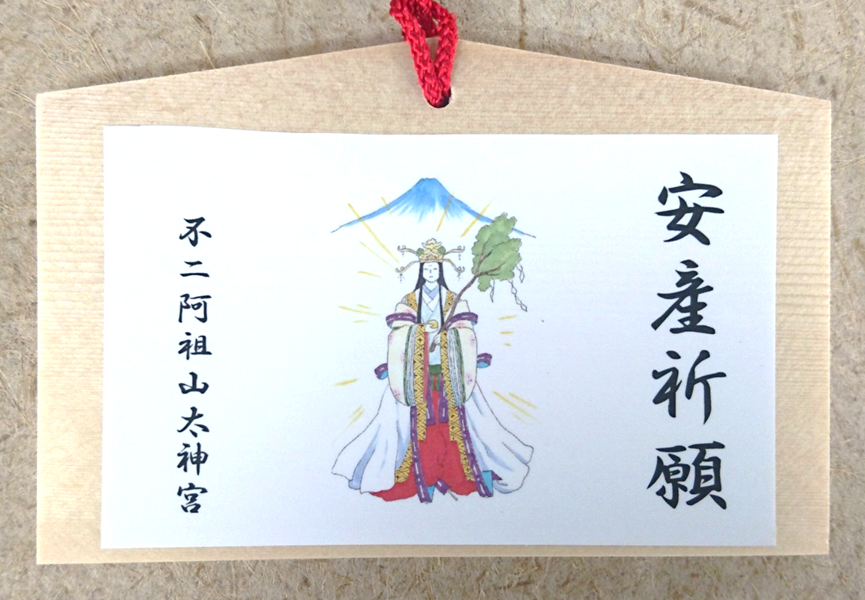 安産祈願
不二阿祖山太神宮